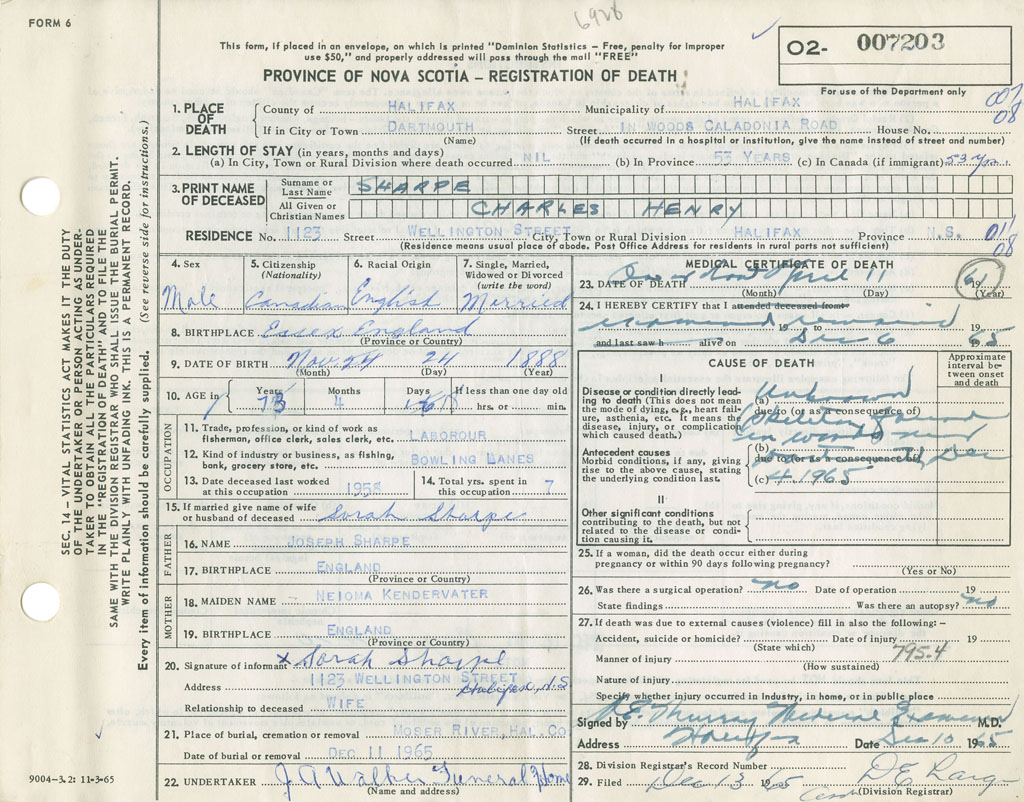 FORM 6
6928
This form, if placed in an envelope, on which is printed "Dominion Statistics – Free, penalty for improper
use $50," and properly addressed will pass through the mail "FREE"
PROVINCE OF NOVA SCOTIA – REGISTRATION OF DEATH
02- 007203
For use of the Department only
007
08
SEC. 14 – VITAL STATISTICS ACT MAKES IT THE DUTY
OF THE UNDERTAKER OR PERSON ACTING AS UNDER-
TAKER TO OBTAIN ALL THE PARTICULARS REQUIRED
IN THE "REGISTRATION OF DEATH" AND TO FILE THE
SAME WITH THE DIVISION REGISTRAR WHO SHALL ISSUE THE BURIAL PERMIT.
WRITE PLAINLY WITH UNFADING INK. THIS IS A PERMANENT RECORD.
Every item of information should be carefully supplied. (See reverse side for instructions.)
1. PLACE OF DEATH
County of HALIFAX Municipality of HALIFAX
If in City or Town DARTMOUTH Street IN WOODS CALADONIA ROAD House No.
(Name) (If death occurred in a hospital or institution, give the name instead of street and number)
2. LENGTH OF STAY (in years, months and days)
(a) In City, Town or Rural Division where death occurred NIL (b) In Province 53 YEARS (c) In Canada (if immigrant) 53 yrs.
3. PRINT NAME OF DECEASED
Surname or Last Name SHARPE
All Given or Christian Names CHARLES HENRY
RESIDENCE No. 1123 Street WELLINGTON STREET City, Town or Rural Division HALIFAX Province N.S.
(Residence means usual place of abode. Post Office Address for residents in rural parts not sufficient)
011
08
4. Sex
Male
5. Citizenship
(Nationality)
Canadian
6. Racial Origin
English
7. Single, Married,
Widowed or Divorced
(write the word)
Married
8. BIRTHPLACE Essex England
(Province or Country)
9. DATE OF BIRTH Nov. 24 24 1888
(Month) (Day) (Year)
10. AGE in Years Months Days If less than one day old
73 4 hrs. or min.
OCCUPATION
11. Trade, profession, or kind of work as
fisherman, office clerk, sales clerk, etc. LABOROUR
12. Kind of industry or business, as fishing,
bank, grocery store, etc. BOWLING LANES
13. Date deceased last worked
at this occupation 1955
14. Total yrs. spent in
this occupation 7
15. If married give name of wife
or husband of deceased Sarah Sharpe
FATHER
16. NAME JOSEPH SHARPE
17. BIRTHPLACE ENGLAND
(Province or Country)
MOTHER
18. MAIDEN NAME – NEIOMA KENDERVATER
19. BIRTHPLACE ENGLAND
(Province or Country)
20. Signature of informant X Sarah Sharpe
Address 1123 WELLINGTON STREET
Halifax, N.S.
Relationship to deceased WIFE
21. Place of burial, cremation or removal MOSER RIVER, HAL. CO
Date of burial or removal DEC 11 1965
22. UNDERTAKER J A Walker Funeral Home
(Name and address)
9004-3.2: 11-3-65
MEDICAL CERTIFICATE OF DEATH
23. DATE OF DEATH On or about April 11 61
(Month) (Day) (Year)
24. I HEREBY CERTIFY that I attended deceased from
examined remains 19 to 19
and last saw h alive on Dec 6 1965
CAUSE OF DEATH
Approximate
interval be-
tween onset
and death
I
Disease or condition directly lead-
ing to death (This does not mean
the mode of dying, e.g., heart fail-
ure, asthenia, etc. It means the
disease, injury, or complication
which caused death.)
(a) Unknown
due to (or as a consequence of)
Skeleton found
in woods near
Antecedent causes
Morbid conditions, if any, giving
rise to the above cause, stating
the underlying condition last.
(b)
due to (or as a consequence of)
(c) 4 1965
II
Other significant conditions
contributing to the death, but not
related to the disease or condi-
tion causing it.
25. If a woman, did the death occur either during
pregnancy or within 90 days following pregnancy?
(Yes or No)
26. Was there a surgical operation? no Date of operation 19
State findings Was there an autopsy? no
27. If death was due to external causes (violence) fill in also the following: –
Accident, suicide or homicide? Date of injury 19
(State which)
795.4
Manner of injury
(How sustained)
Nature of injury
Specify whether injury occurred in industry, in home, or in public place
Signed by R.E. Murray Medical Examiner M.D.
Address Halifax Date Dec 10 1965
28. Division Registrar's Record Number
29. Filed Dec 13 1965 D E
(Division Registrar)